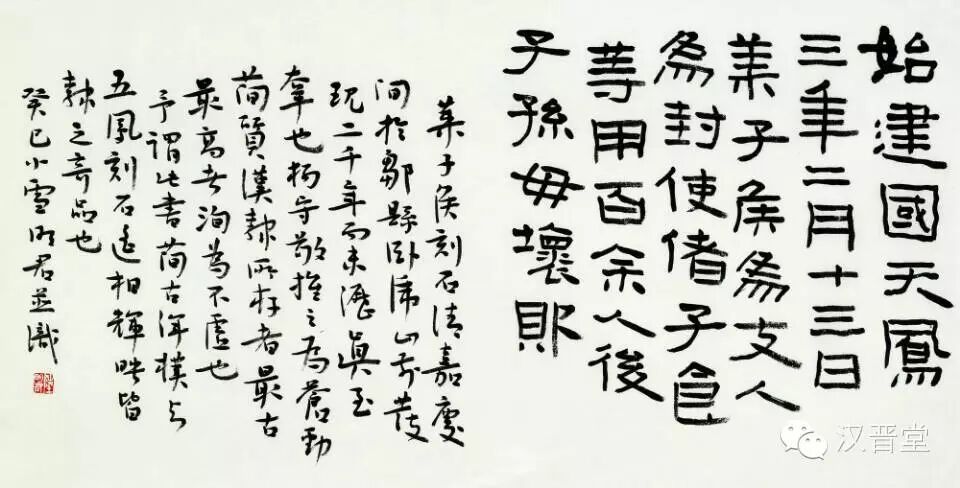 始建國天鳳
三年二月十三日
萊子侯爲支人
爲封使偖子食
等用百余人後
子孫毋壞敗
萊子侯刻石清嘉慶
間於鄒縣卧虎山前發
現二千年而未泐真至
幸也楊守敬推之為蒼勁
簡質漢隸所存者最古
最高者洵為不虛也
予謂此書簡古渾樸與
五鳳刻石遙相輝映皆
隸之奇品也
癸巳小雪明君並識
汉晋堂